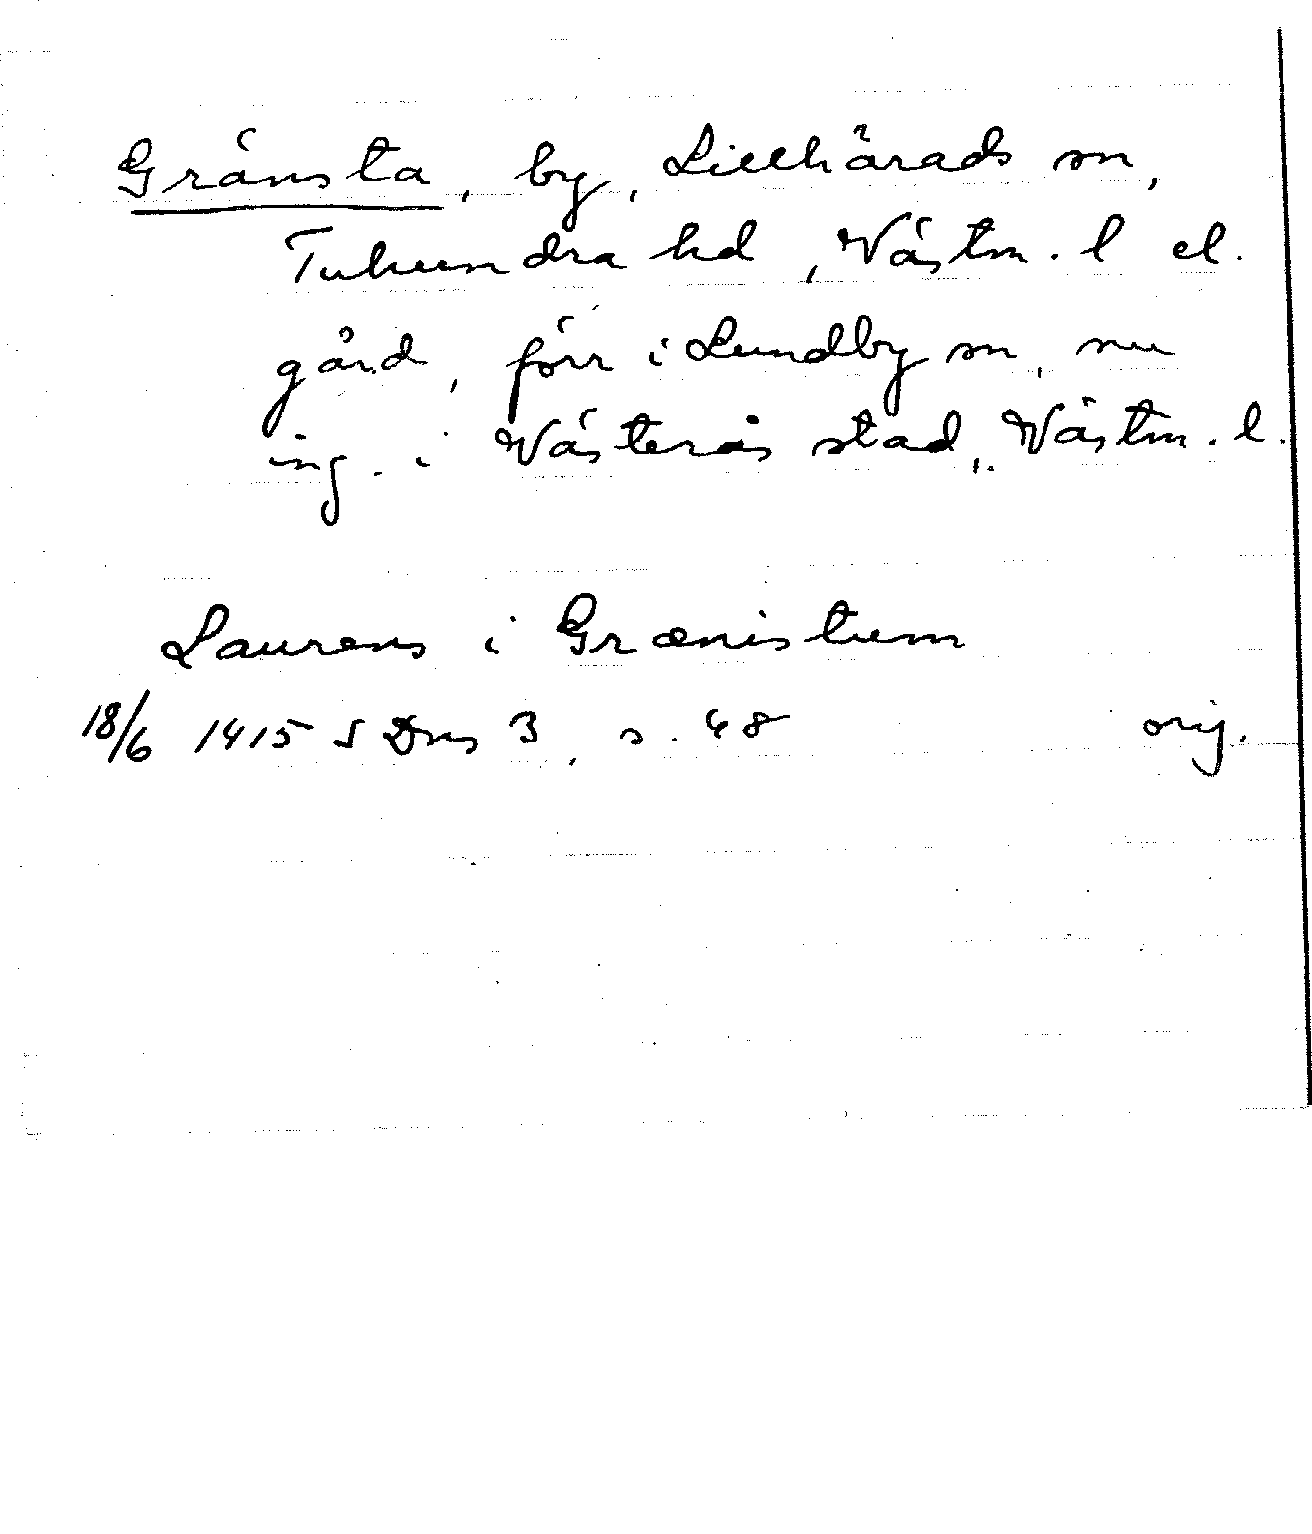 Gränsta, by, Lillhärads sn,
Tuhundra hd, Västm. l el.
gård, förr i Lundby sn, nu
ing. i Västerås stad, Västm. l.
Laurens i Grænistum
18/6 1415 SDns 3, s. 48 orig.